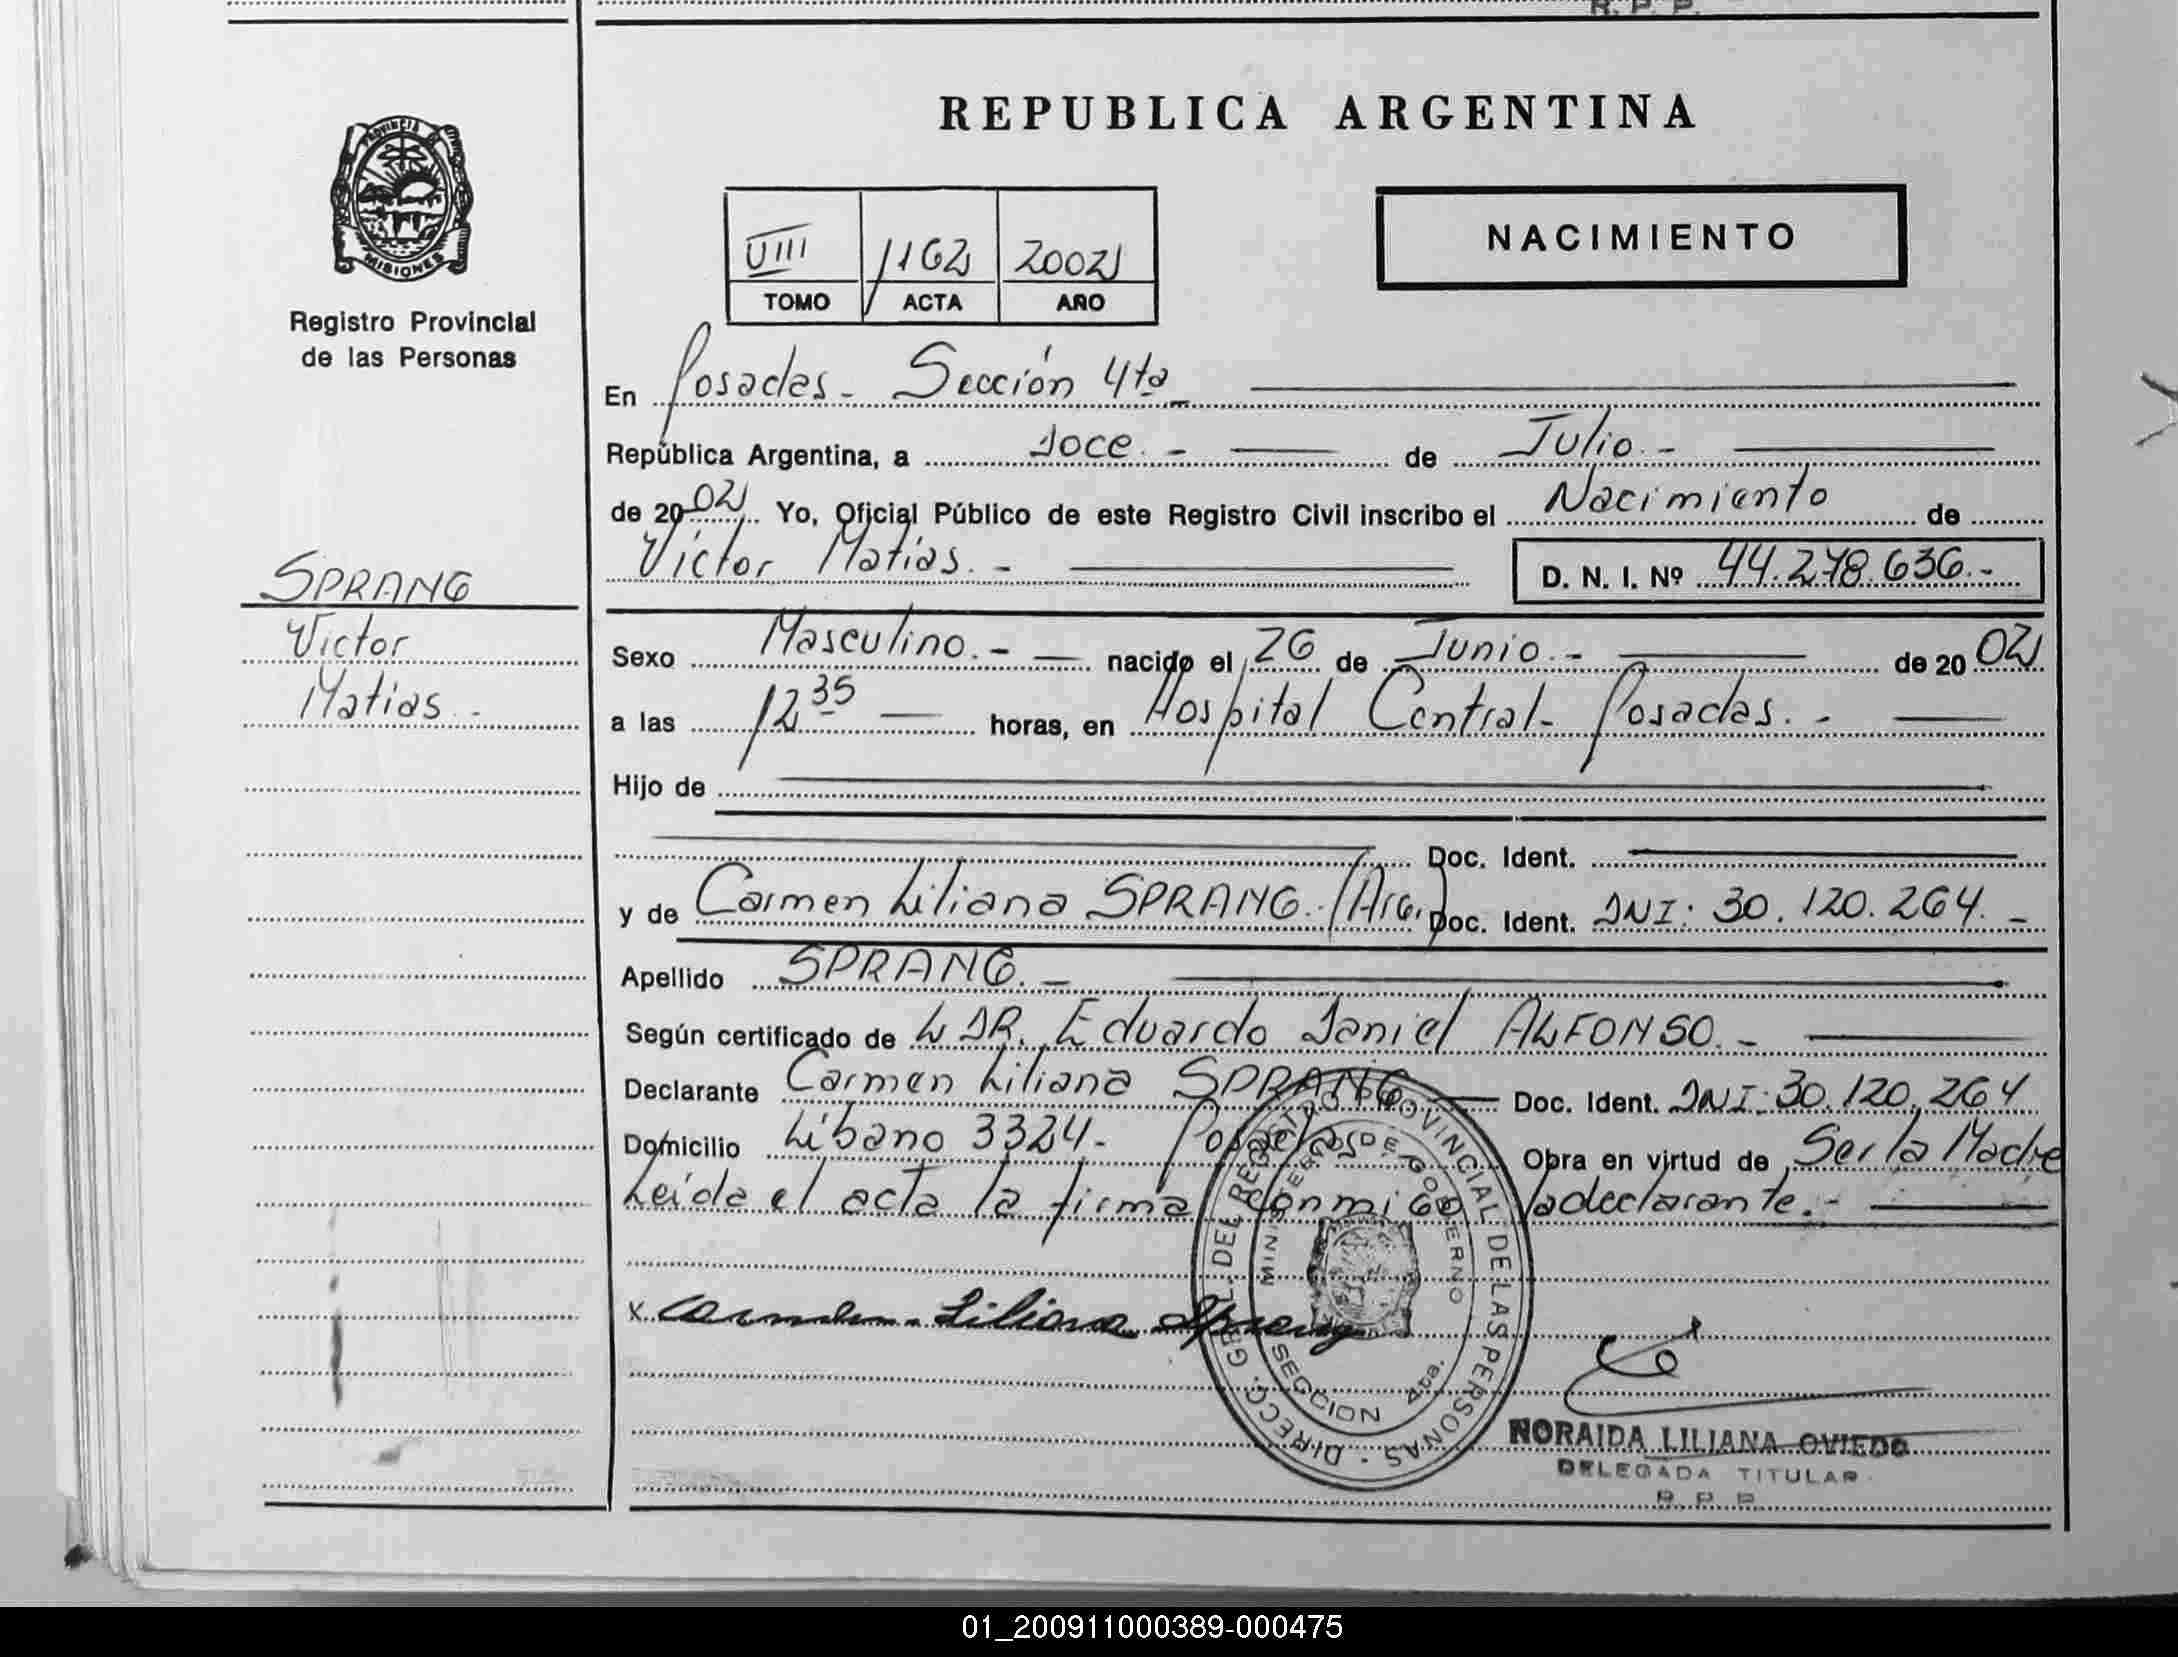 R. P. P.
PROVINCIA DE
MISIONES
Registro Provincial
de las Personas
SPRANG
Victor
Matias.-
REPUBLICA ARGENTINA
NACIMIENTO
VIII 1162 2002
TOMO ACTA AÑO
En Posadas - Sección 4ta -
República Argentina, a doce.- de Julio.-
de 2002. Yo, Oficial Público de este Registro Civil inscribo el Nacimiento de
Víctor Matías.- D. N. I. Nº 44.278.636.-
Sexo Masculino.- nacido el 26 de Junio.- de 2002
a las 12 35 horas, en Hospital Central - Posadas.-
Hijo de
Doc. Ident.
y de Carmen Liliana SPRANG.- (Arg.) Doc. Ident. DNI: 30.120.264.-
Apellido SPRANG.-
Según certificado de L DR. Eduardo Daniel ALFONSO.-
Declarante Carmen Liliana SPRANG.- Doc. Ident. DNI: 30.120.264
Domicilio Líbano 3324- Posadas Obra en virtud de Ser la Madre
Leída el acta la firma conmigo la declarante.-
x Carmen Liliana Sprang
DIRECC. GRAL. DEL REGISTRO PROVINCIAL DE LAS PERSONAS -
MINISTERIO DE GOBIERNO
SECCION 4ta.
NORAIDA LILIANA OVIEDO
DELEGADA TITULAR
R P P
01_200911000389-000475